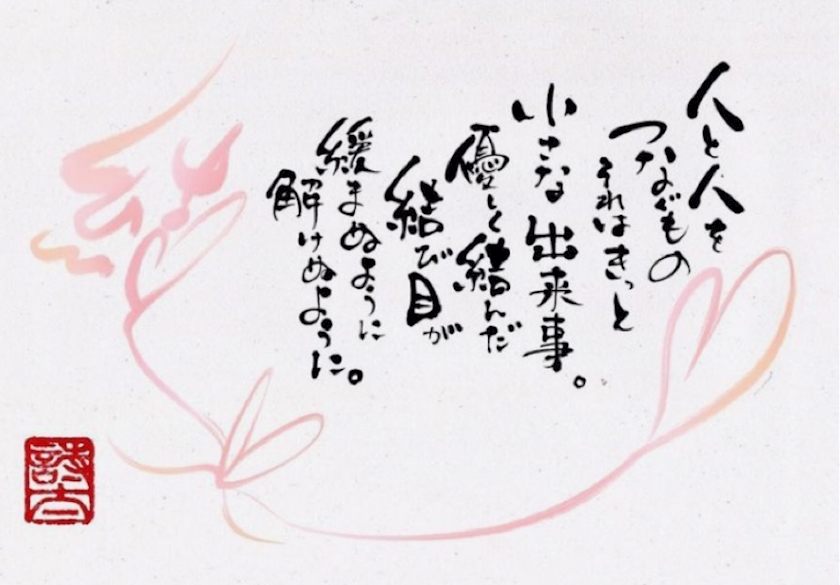 人と人を
つなぐもの
それはきっと
小さな出来事。
優しく結んだ
結び目が
緩まぬように
解けぬように。